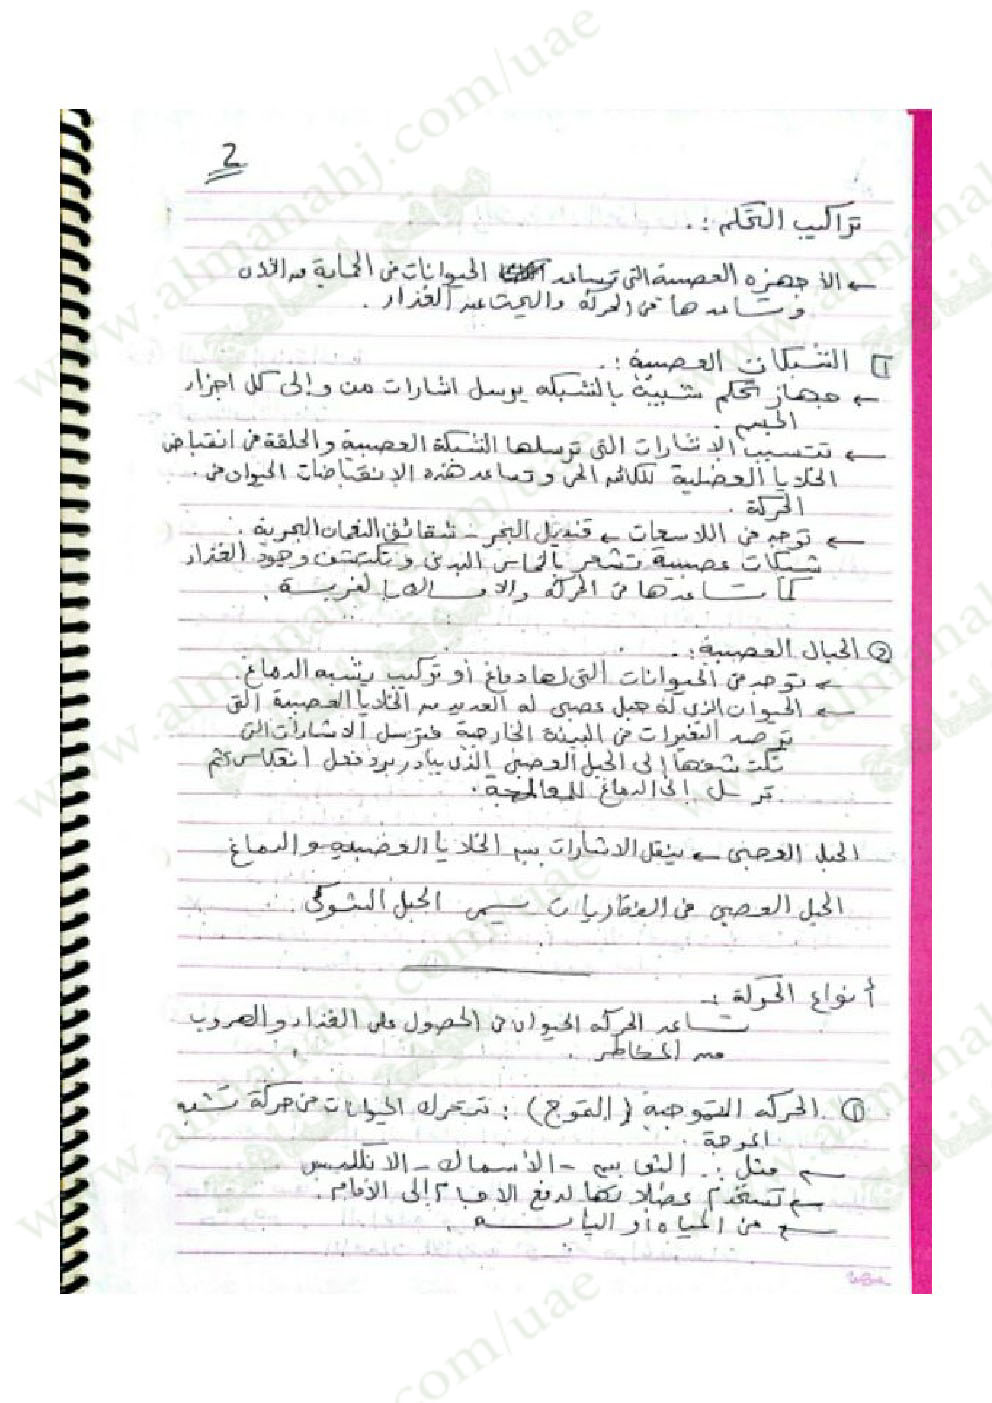 2
تراكيب التحكم :.
← الأجهزه العصبية التي تساعد الحيوانات في الحماية من الأذى
وتساعدها في الحركه والبحث عن الغذاء .
1 الشبكات العصبية :.
← جهاز تحكم شبيبة بالشبكه يرسل اشارات من وإلى كل اجزاء
الجسم .
← تتسبب الإشارات التي ترسلها الشبكة العصبية والحلقة في انقباض
الخلايا العضلية للكائن الحي وتساعد هذه الإنقباضات الحيوان في
الحركة .
← توجد في اللاسعات ← قنديل البحر - شقائق النعمان البحرية .
شبكات عصبية تشعر بالحاس البدني وتكتشف وجود الغذاء
كما تساعدها في الحركه والامساك بالفريسة .
2 الحبال العصبية :.
← توجد في الحيوانات التي لها دماغ أو تركيب يشبه الدماغ .
← الحيوان الذي له حبل عصبي له العديد من الخلايا العصبية التي
ترصد التغيرات في البيئة الخارجية فترسل الاشارات التي
تكتشفها إلى الحبل العصبي الذي يبادر برد فعل انعكاسي ثم
ترسل الى الدماغ للمعالجة .
الحبل العصبي ← ينقل الاشارات بين الخلايا العصبيه والدماغ
الحبل العصبي في الفقاريات يسمى الحبل الشوكي .
أنواع الحركة :.
تساعد الحركه الحيوان في الحصول على الغذاء والهروب
من المخاطر .
1 الحركه التموجية ( التموج ) : تتحرك الحيوانات في حركة تشبه
الموجة .
← مثل :. الثعابين - الأسماك - الانكليس
← تستخدم عضلاتها لدفع الاجسام إلى الأمام .
← في المياه أو اليابسه .
www.almanahj.com/uae
موقع المناهج